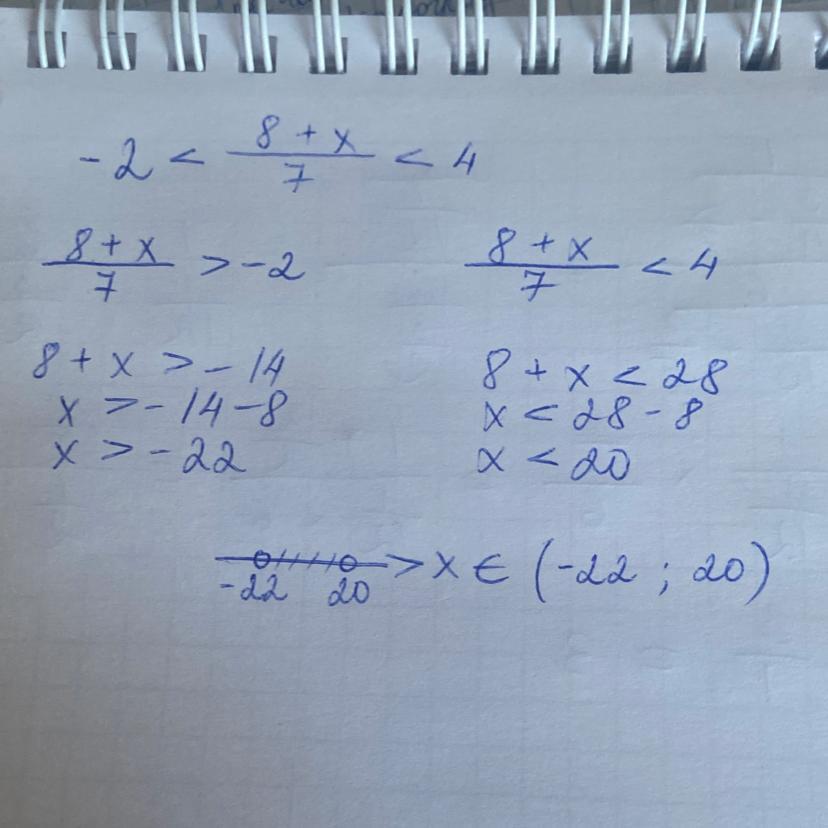 -2 < (8 + x)/7 < 4
(8 + x)/7 > -2
8 + x > -14
x > -14-8
x > -22
(8 + x)/7 < 4
8 + x < 28
x < 28 - 8
x < 20
-22 20 x ∈ (-22 ; 20)